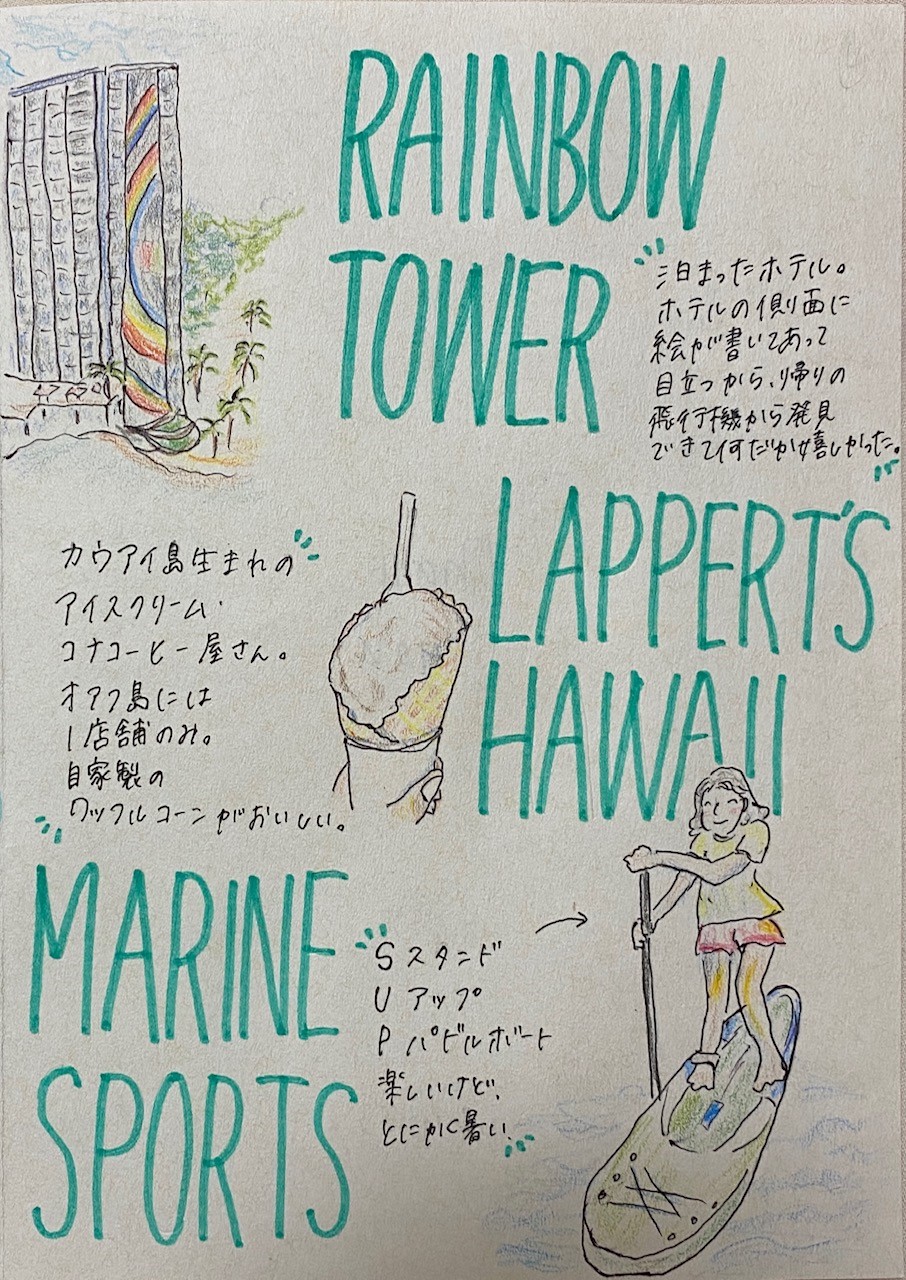 RAINBOW
TOWER
泊まったホテル。
ホテルの側面に
絵が書いてあって
目立つから、帰りの
飛行機から発見
できて何だか嬉しかった。
LAPPERT'S
HAWAII
カウアイ島生まれの
アイスクリーム・
コナコーヒー屋さん。
オアフ島には
1店舗のみ。
自家製の
ワッフルコーンがおいしい。
MARINE
SPORTS
S スタンド
U アップ
P パドルボート
楽しいけど、
とにかく暑い